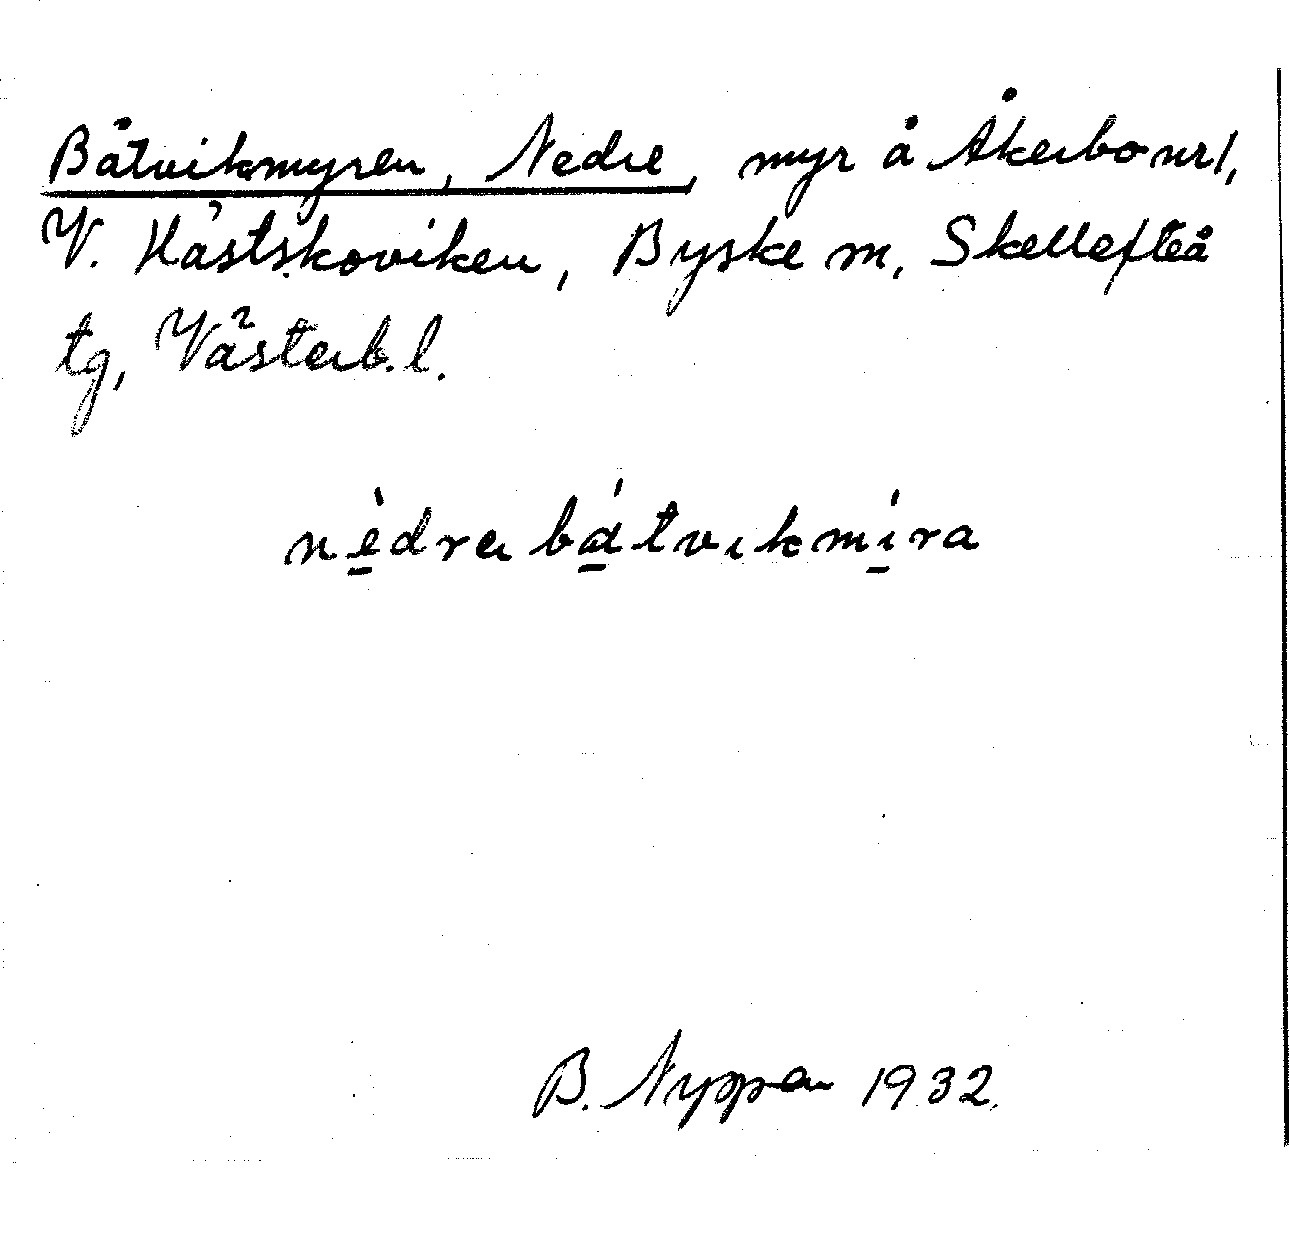 Båtvikmyren, Nedre, myr å Åkerbo nr 1,
V. Hästskoviken, Byske m, Skellefteå
tg, Västerb. l.
nèdra bátvikmíra
B. Nyppen 1932.